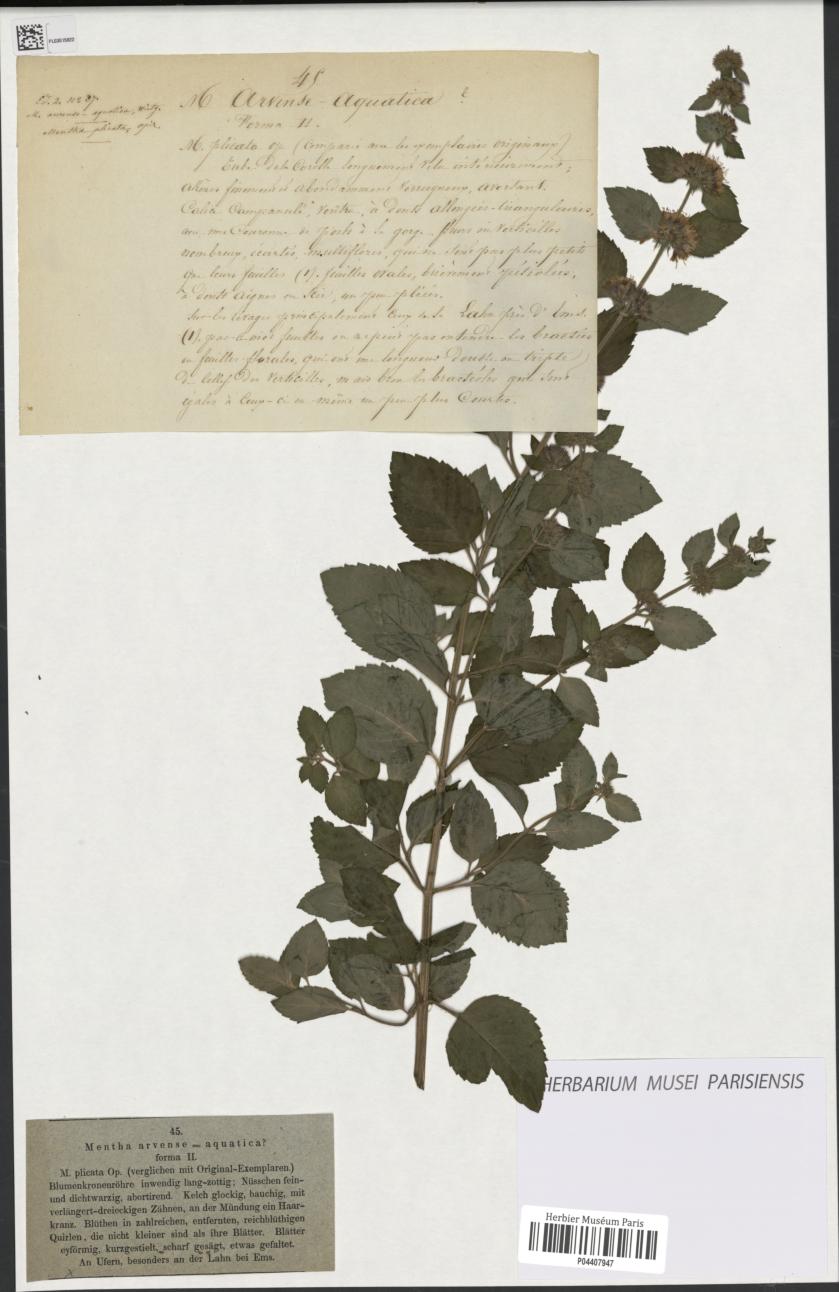 45
Ed. 2. No 87.
M. arvensi-aquatica, Wirtg.
Mentha plicata, opiz.
M Arvense-Aquatica ?
Forma II.
M. plicata op (comparé avec les exemplaires originaux)
Tube de la Corolle longuement velu intérieurement;
abondamment verruqueux, avortant.
Calice Campanulé, ventru, à dents allongées-triangulaires,
avec une Couronne de poils à la gorge. fleurs en Verticilles
nombreux, écartés, multiflores, qui ne sont pas plus petits
que leurs feuilles (1). feuilles ovales, brièvement pétiolées,
à dents aigues en Scie, un peu plissées.
Sur les rivages principalement ceux de la Lahn près d'Ems.
(1). par ces mots feuilles on ne peut pas entendre les bractées
ou feuilles florales, qui ont une longueur double ou triple
de celles des Verticilles, mais bien les bractéoles qui sont
égales à ceux-ci ou même un peu plus Courtes.
HERBARIUM MUSEI PARISIENSIS
45.
Mentha arvense - aquatica?
forma II.
M. plicata Op. (verglichen mit Original-Exemplaren.)
Blumenkronenröhre inwendig lang-zottig; Nüsschen fein-
und dichtwarzig, abortirend. Kelch glockig, bauchig, mit
verlängert-dreieckigen Zähnen, an der Mündung ein Haar-
kranz. Blüthen in zahlreichen, entfernten, reichblüthigen
Quirlen, die nicht kleiner sind als ihre Blätter. Blätter
eyförmig, kurzgestielt, scharf gesägt, etwas gefaltet.
An Ufern, besonders an der Lahn bei Ems.
Herbier Muséum Paris
P04407947